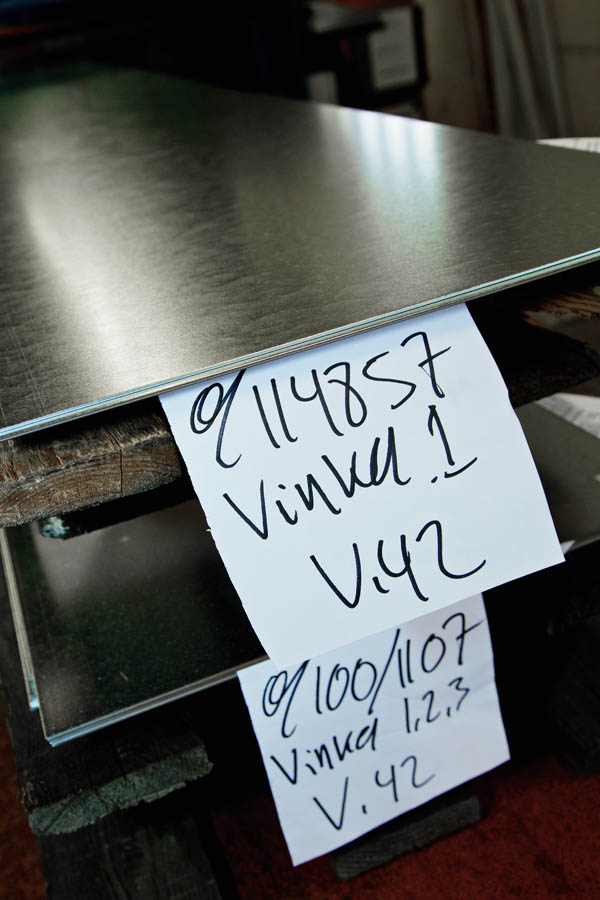 9114857
Vinkel 1
V.42
9100/1107
Vinkel 1,2,3
V.42